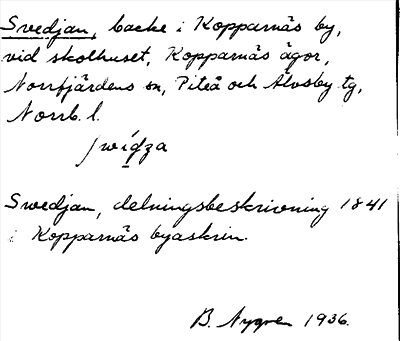 Svedjan, backe i Kopparnäs by,
vid skolhuset, Kopparnäs ägor,
Norrfjärdens sn, Piteå och Älvsby tg,
Norrb. l.
Swedjan, delningsbeskrivning 1841
i Kopparnäs byaskrin.
B. Nygren 1936.